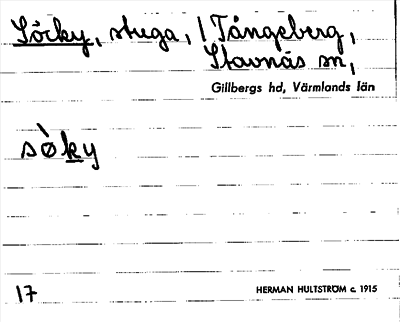 Söcky, stuga, / Tångeberg,
Stavnäs sn,
Gillbergs hd, Värmlands län
sòky
17
HERMAN HULTSTRÖM c. 1915